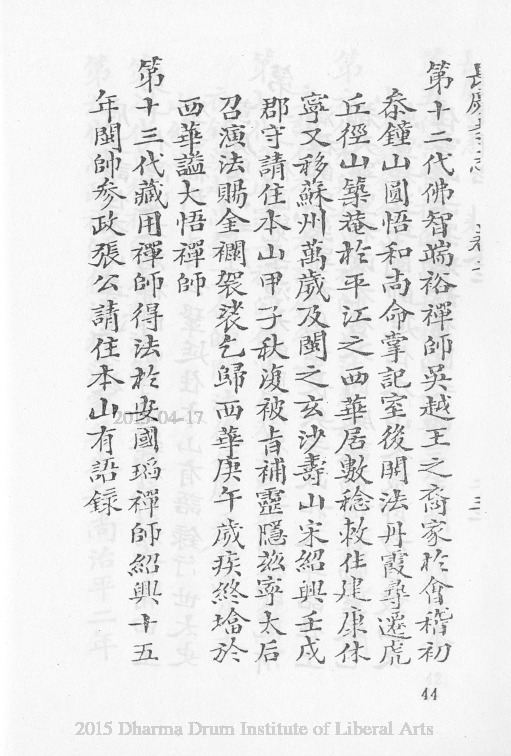 第十二代佛智端裕禪師吳越王之裔家於會稽初
叅鐘山圓悟和尚命掌記室後開法丹霞尋遷虎
丘徑山築菴於平江之西華居數稔敕住建康休
寧又移蘇州萬歲及閩之玄沙壽山宋紹興壬戌
郡守請住本山甲子秋復被旨補靈隱玆寧太后
召演法賜金襴袈裟乞歸西華庚午歲疾終墖於
西華謚大悟禪師
第十三代藏用禪師得法於安國瑫禪師紹興十五
年閩帥參政張公請住本山有語錄
44
2015-04-17
2015 Dharma Drum Institute of Liberal Arts